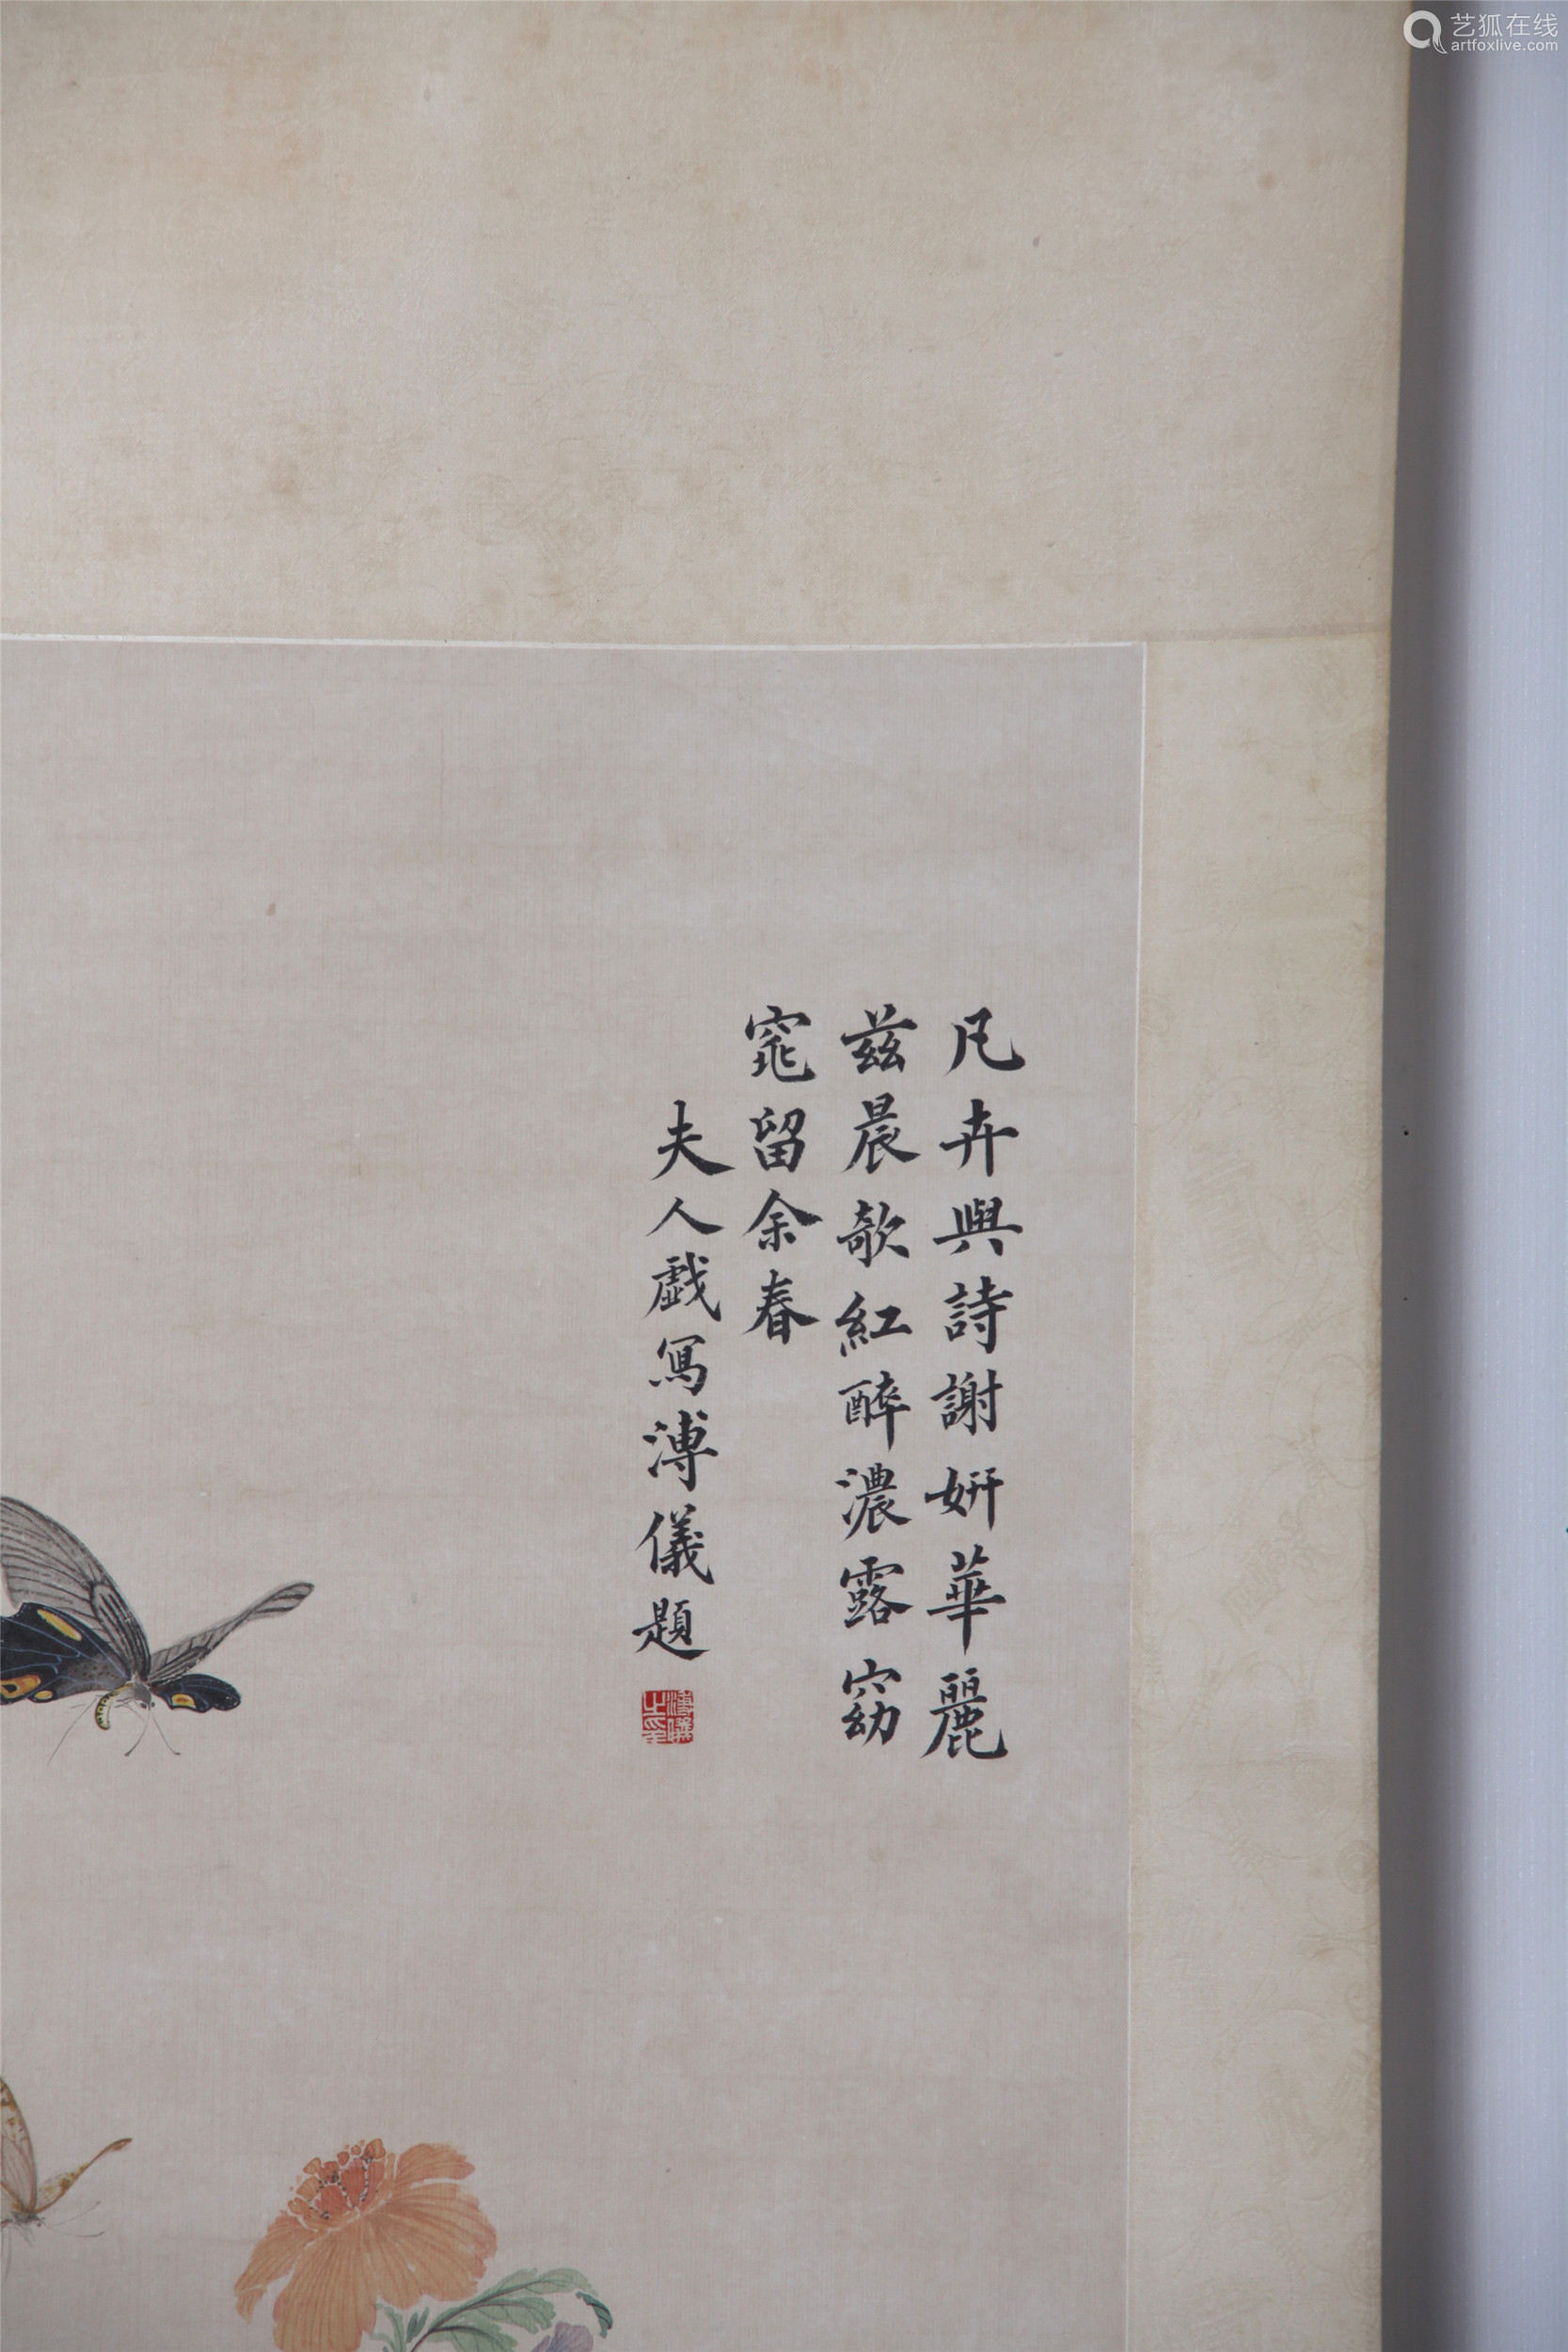 凡卉與詩謝妍華麗
茲晨欹紅醉濃露窈
窕留余春
夫人戲寫溥儀題
溥儀之印
艺狐在线
artfoxlive.com